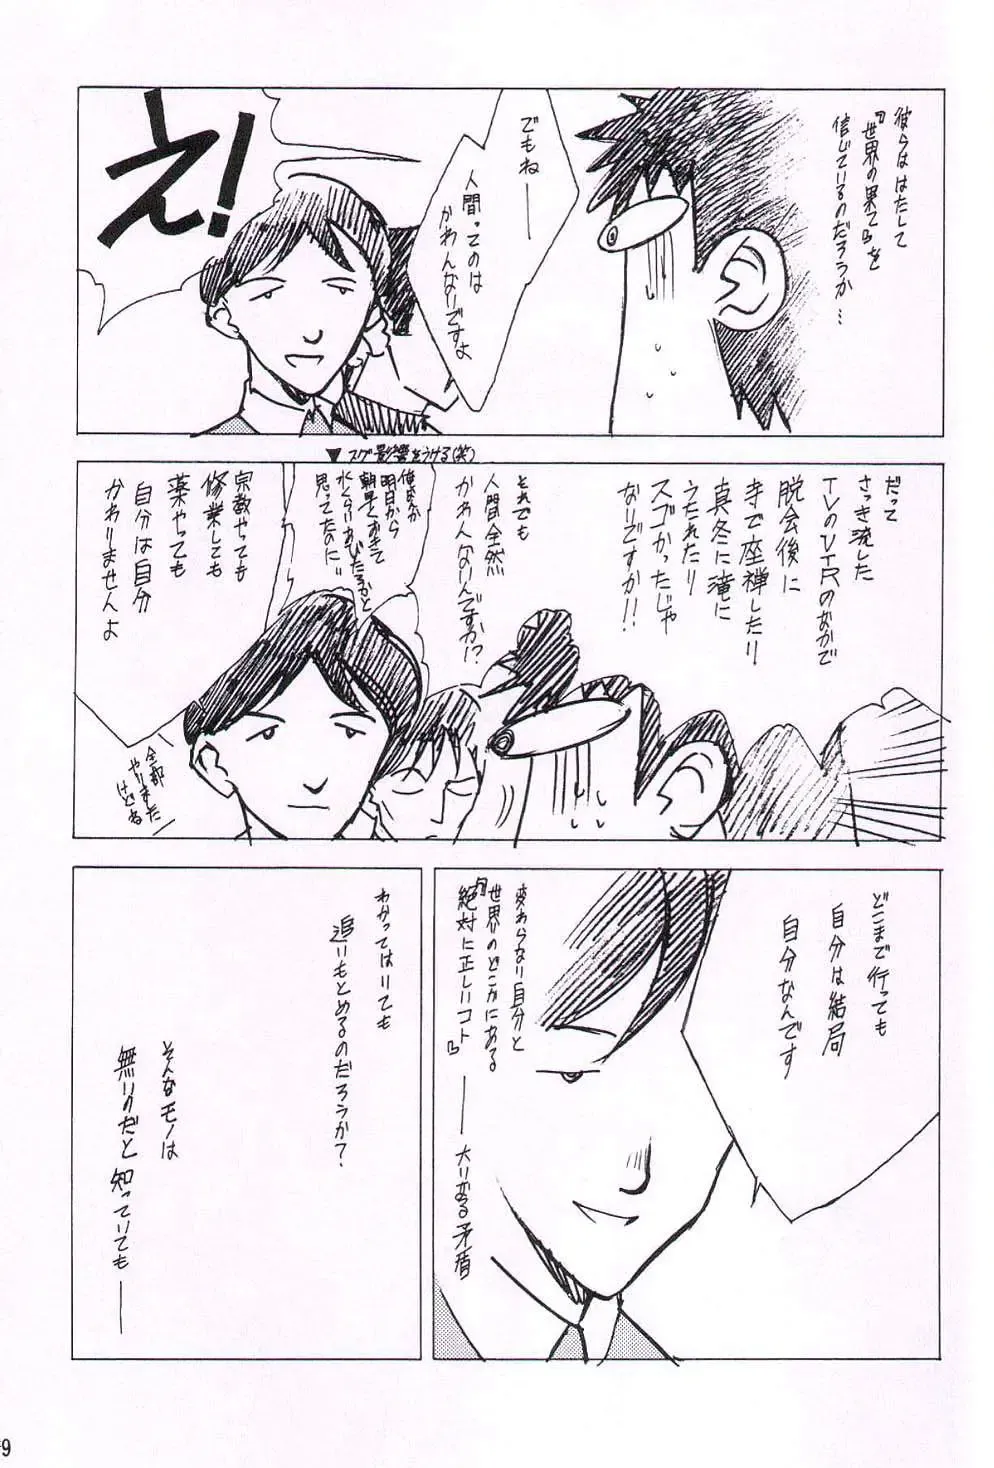 彼らははたして
『世界の果て』を
信じているのだろうか…
でもね──
人間ってのは
かわんないですよ
え!
▼スグ影響をうける(笑)
だって
さっき流した
TVのVTRのなかで
脱会後に
寺で座禅したり
真冬に滝に
うたれたり
スゴかったじゃ
ないですか!!
それでも
人間全然
かわんないんですか!?
明日から
朝早くおきて
水くらいあびたろかと
思ってたのに
宗教やっても
修業しても
薬やっても
自分は自分
かわりませんよ
全部
やりました
けどね
どこまで行っても
自分は結局
自分なんです
変わらない自分と
世界のどこかにある
『絶対に正しいコト』
──大いなる矛盾
わかってはいても
追いもとめるのだろうか?
そんなモノは
無いのだと知っていても──
9